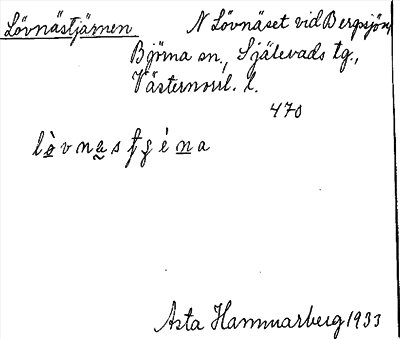 Lövnästjärnen N Lövnäset vid Bergsjön
Björna sn., Själevads tg.,
Västernorrl. l.
470
Asta Hammarberg 1933